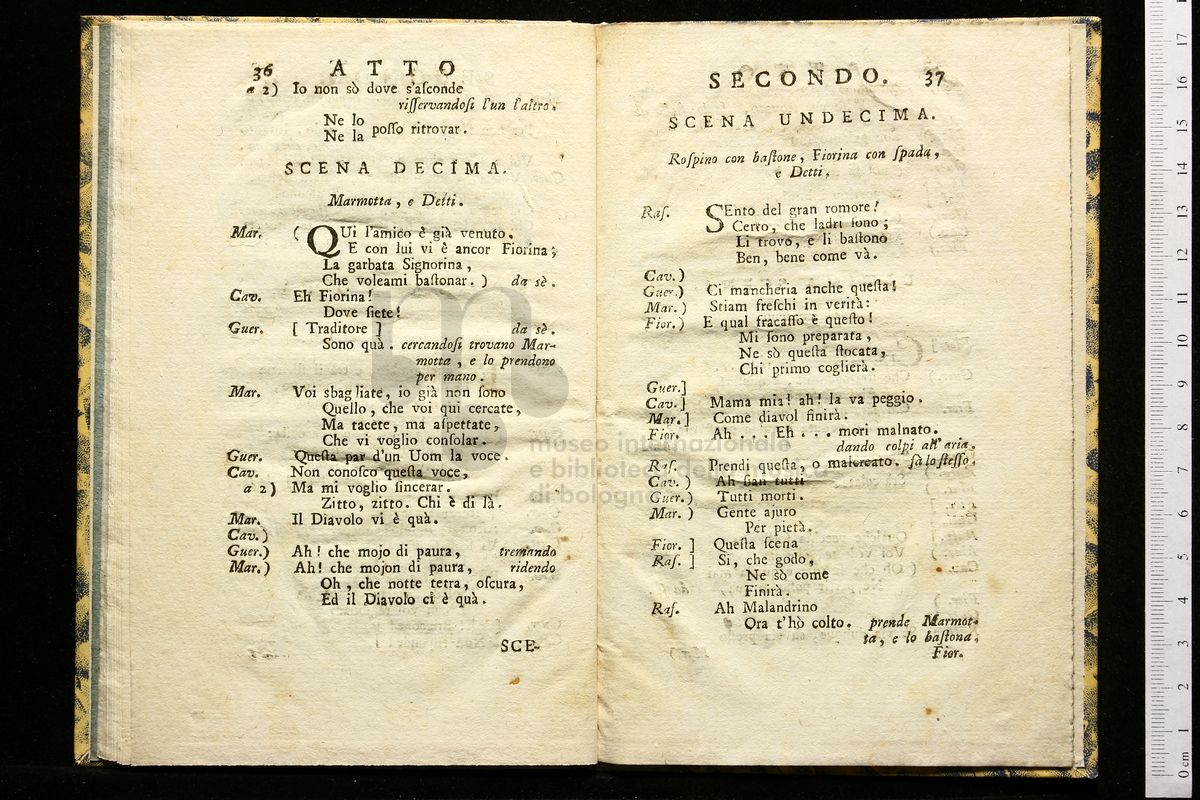 36 ATTO
a 2) Io non sò dove s'aſconde
riſſervandoſi l'un l'altro.
Ne lo
Ne la poſſo ritrovar.
SCENA DECIMA.
Marmotta, e Detti.
Mar. ( QUi l'amico è già venuto.
E con lui vi è ancor Fiorina;
La garbata Signorina,
Che voleami baſtonar. ) da sè.
Cav. Eh Fiorina!
Dove ſiete!
Guer. [ Traditore ] da sè.
Sono quà. cercandoſi trovano Mar-
motta, e lo prendono
per mano.
Mar. Voi sbagliate, io già non ſono
Quello, che voi qui cercate,
Ma tacete, ma aſpettate,
Che vi voglio conſolar.
Guer. Queſta par d'un Uom la voce.
Cav. Non conoſco queſta voce,
a 2) Ma mi voglio ſincerar.
Zitto, zitto. Chi è di là.
Mar. Il Diavolo vi è quà.
Cav.)
Guer.) Ah! che mojo di paura, tremando
Mar.) Ah! che mojon di paura, ridendo
Oh, che notte tetra, oſcura,
Ed il Diavolo ci è quà.
SCE-
SECONDO. 37
SCENA UNDECIMA.
Roſpino con baſtone, Fiorina con ſpada,
e Detti.
Raſ. SEnto del gran romore!
Certo, che ladri ſono;
Li trovo, e li baſtono
Ben, bene come và.
Cav.)
Guer.) Ci mancheria anche queſta!
Mar.) Stiam freſchi in verità:
Fior.) E qual fracaſſo è queſto!
Mi ſono preparata,
Ne sò queſta ſtocata,
Chi primo coglierà.
Guer.]
Cav.] Mama mia! ah! la va peggio.
Mar.] Come diavol finirà.
Fior. Ah ... Eh ... mori malnato.
dando colpi all'aria.
Raſ. Prendi queſta, o malcreato. fà lo ſteſſo.
Cav. ) Ah ſian tutti
Guer.) Tutti morti.
Mar. ) Gente ajuro
Per pietà.
Fior. ] Queſta ſcena
Raſ. ] Si, che godo,
Ne sò come
Finirà.
Raſ. Ah Malandrino
Ora t'hò colto. prende Marmot-
ta, e lo baſtona.
Fior.
museo internazionale
e biblioteca della musica
di bologna
17
16
15
14
13
12
11
10
9
8
7
6
5
4
3
2
1
0 cm